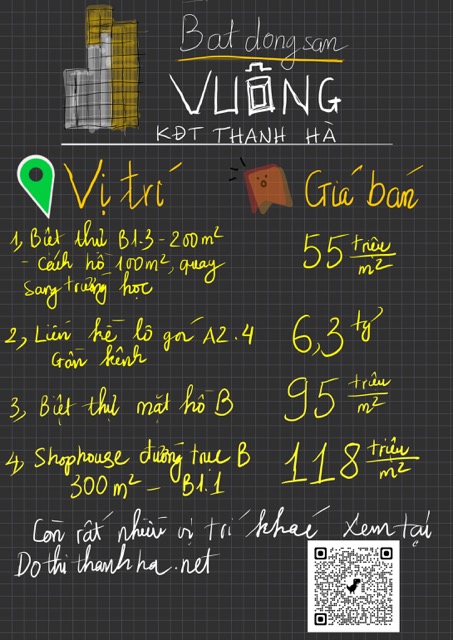 Batdongsan
VUÔNG
KĐT THANH HÀ
Vị trí
Giá bán
1, Biệt thự B1.3 - 200m²
- Cách hồ 100m², quay
sang trường học
55 triệu/m²
2, Liền kề lô góc A2.4
Gần kênh
6,3 tỷ
3, Biệt thự mặt hồ B
95 triệu/m²
4, Shophouse đường trục B
300m² - B1.1
118 triệu/m²
Còn rất nhiều vị trí khác xem tại
Dothithanhha.net